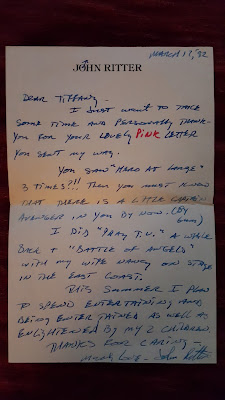 MARCH 11, '82
JOHN RITTER
DEAR TIFFANY -
I JUST WANT TO TAKE
SOME TIME AND PERSONALLY THANK
YOU FOR YOUR LOVELY PINK LETTER
YOU SENT MY WAY.
YOU SAW "HERO AT LARGE"
3 TIMES?!!! THEN YOU MUST KNOW
THAT THERE IS A LITTLE CAPTAIN
AVENGER IN YOU BY NOW. (BY
I DID "PRAY T.V." A WHILE
BACK & "BATTLE OF ANGELS"
WITH MY WIFE NANCY ON STAGE
IN THE EAST COAST.
THIS SUMMER I PLAN
TO SPEND ENTERTAINING AND
BEING ENTERTAINED AS WELL AS
ENLIGHTENED BY MY 2 CHILDREN
THANKS FOR CARING -
Much Love - John Ritter